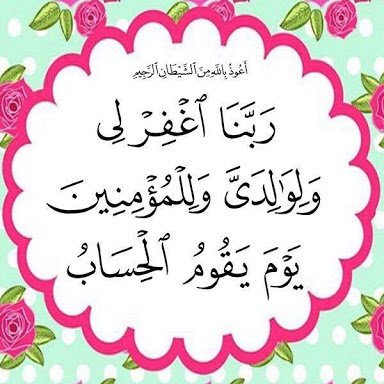 أَعُوذُ بِاللَّهِ مِنَ الشَّيْطَانِ الرَّجِيمِ
رَبَّنَا ٱغْفِرْ لِى
وَلِوَٰلِدَىَّ وَلِلْمُؤْمِنِينَ
يَوْمَ يَقُومُ ٱلْحِسَابُ